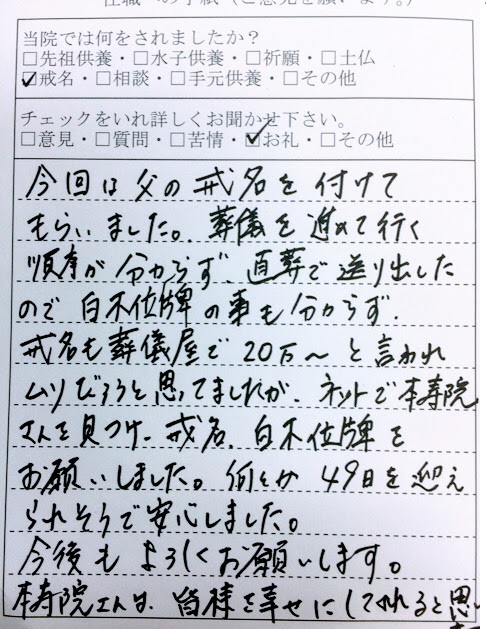 住職への手紙（ご意見を願います。）
当院では何をされましたか？
□先祖供養・□水子供養・□祈願・□土仏
☑戒名・□相談・□手元供養・□その他
チェックをいれ詳しくお聞かせ下さい。
□意見・□質問・□苦情・☑お礼・□その他
今回は父の戒名を付けて
もらいました。葬儀を進めて行く
順序が分からず、直葬で送り出した
ので白木位牌の事も分からず、
戒名も葬儀屋で20万〜と言われ
ムリだろうと思ってましたが、ネットで本寿院
さんを見つけ、戒名、白木位牌を
お願いしました。何とか49日を迎え
られそうで安心しました。
今後もよろしくお願いします。
本寿院さんは、皆様を幸せにしてくれると思い